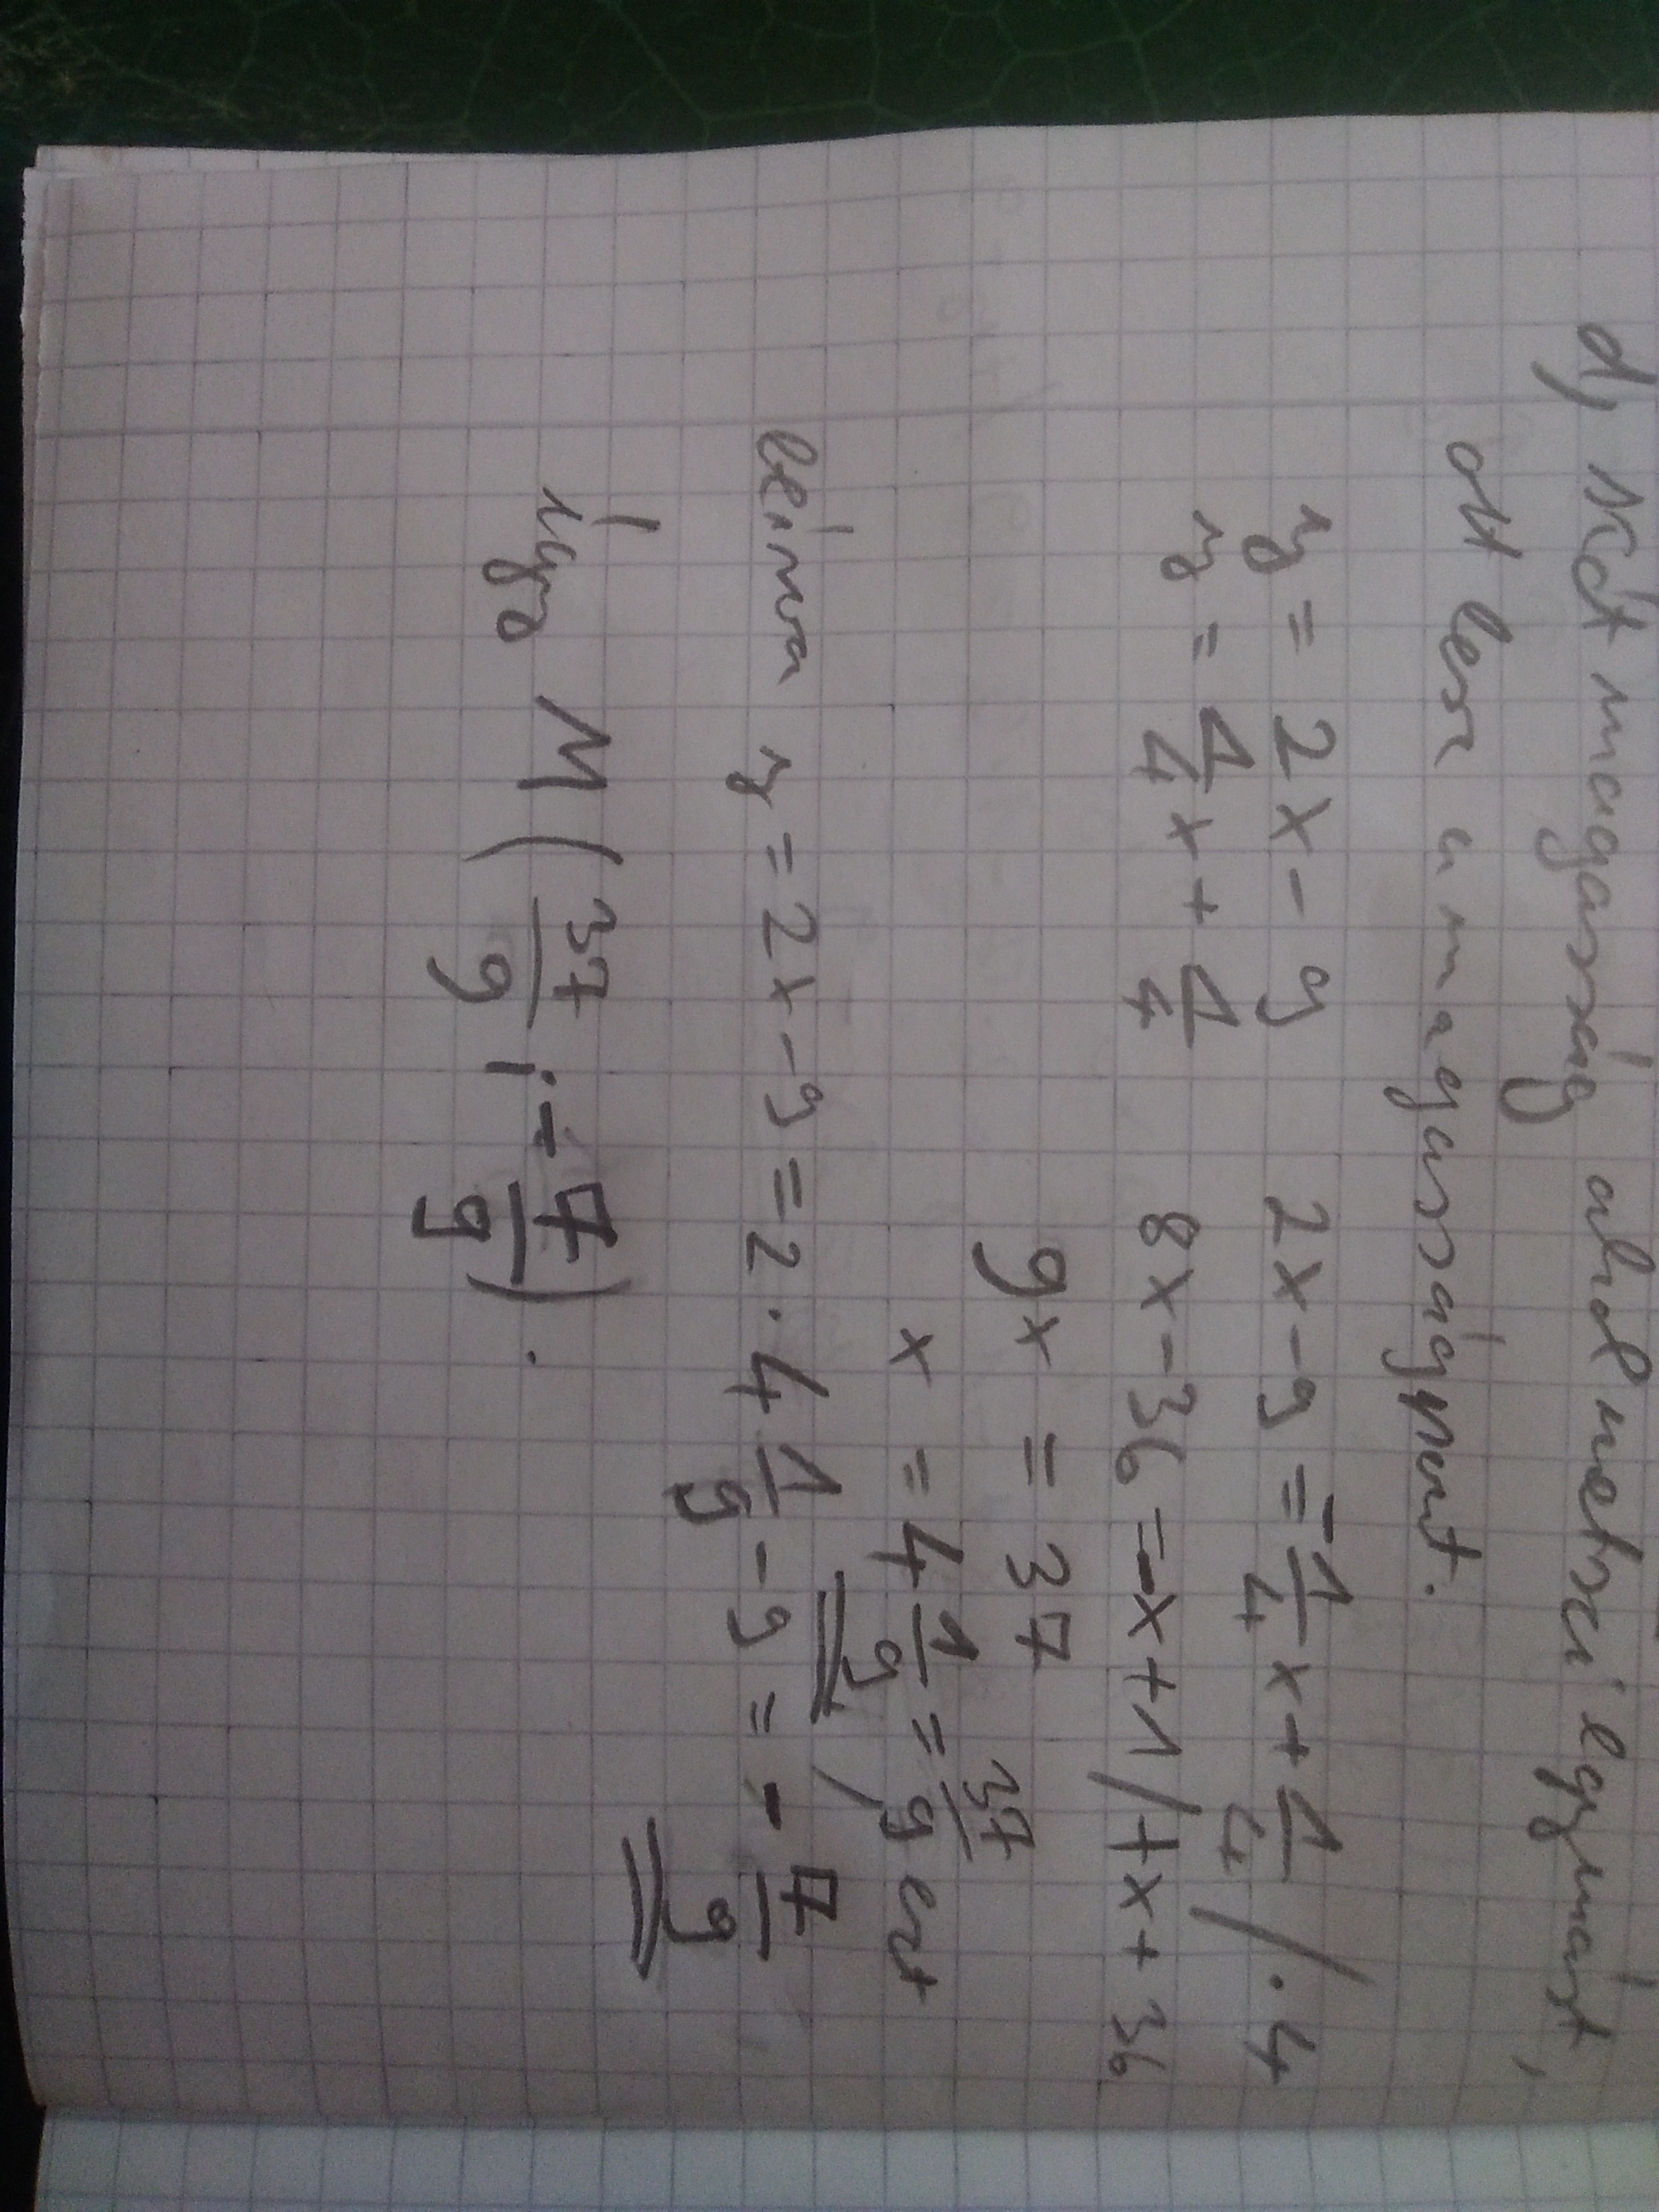 d) két magasság ahol metszi egymást,
ott lesz a magasságpont.
y = 2x - 9 2x - 9 = -1/4 x + 1/4 / · 4
y = 1/4 x + 1/4 8x - 36 = -x + 1 / +x + 36
9x = 37
x = 4 1/9 = 37/9 ezt
beírva y = 2x - 9 = 2 · 4 1/9 - 9 = - 7/9
így M ( 37/9 ; - 7/9 ) .